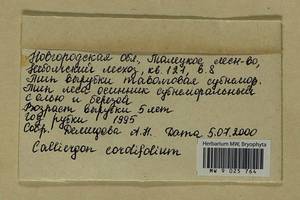 Новгородская обл. лесн-во,
лесхоз, кв. 127, в. 8
Тип вырубки таволговая субнемор.
Тип леса осинник субнеморальный
с елью и березой
Возраст вырубки 5 лет
Год рубки 1995
Собр. Демидова А.Н. Дата 5.07.2000
Calliergon cordifolium
Herbarium MW, Bryophyta
MW 9 025 764